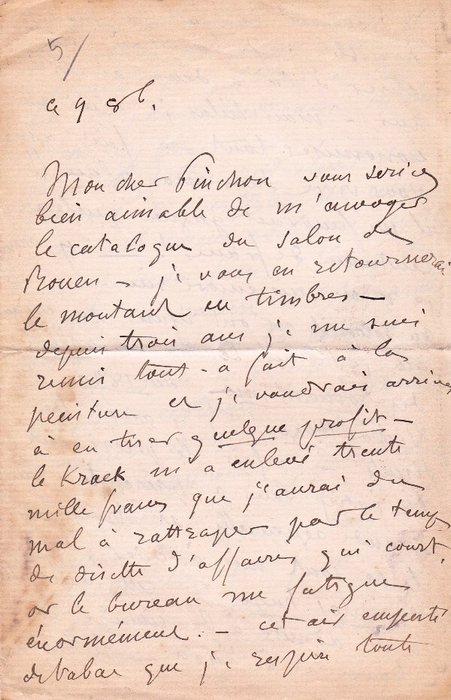 5/
ce 9 8b.
Mon cher Pinchon vous seriez
bien aimable de m'envoyer
le catalogue du salon de
Rouen – je vous en retournerai
le montant en timbres –
depuis trois ans je me suis
remis tout-a fait à la
peinture et je voudrais arriver
à en tirer quelque profit –
le Krack m'a enlevé trente
mille francs que j'aurai du
mal à rattraper par le temps
de disette d'affaires qui court,
or le bureau me fatigue
énormément. – cet air empesté
de tabac que je respire toute